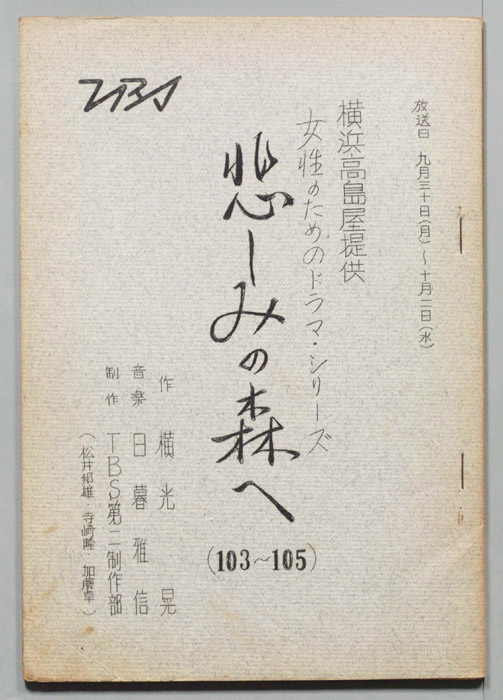 TBS
放送日 九月三十日(月)〜十月二日(水)
横浜高島屋提供
女性のためのドラマ・シリーズ
悲しみの森へ
(103〜105)
作 横光 晃
音楽 日暮雅信
制作 TBS第二制作部
(松井邦雄・寺崎隆 加藤卓)